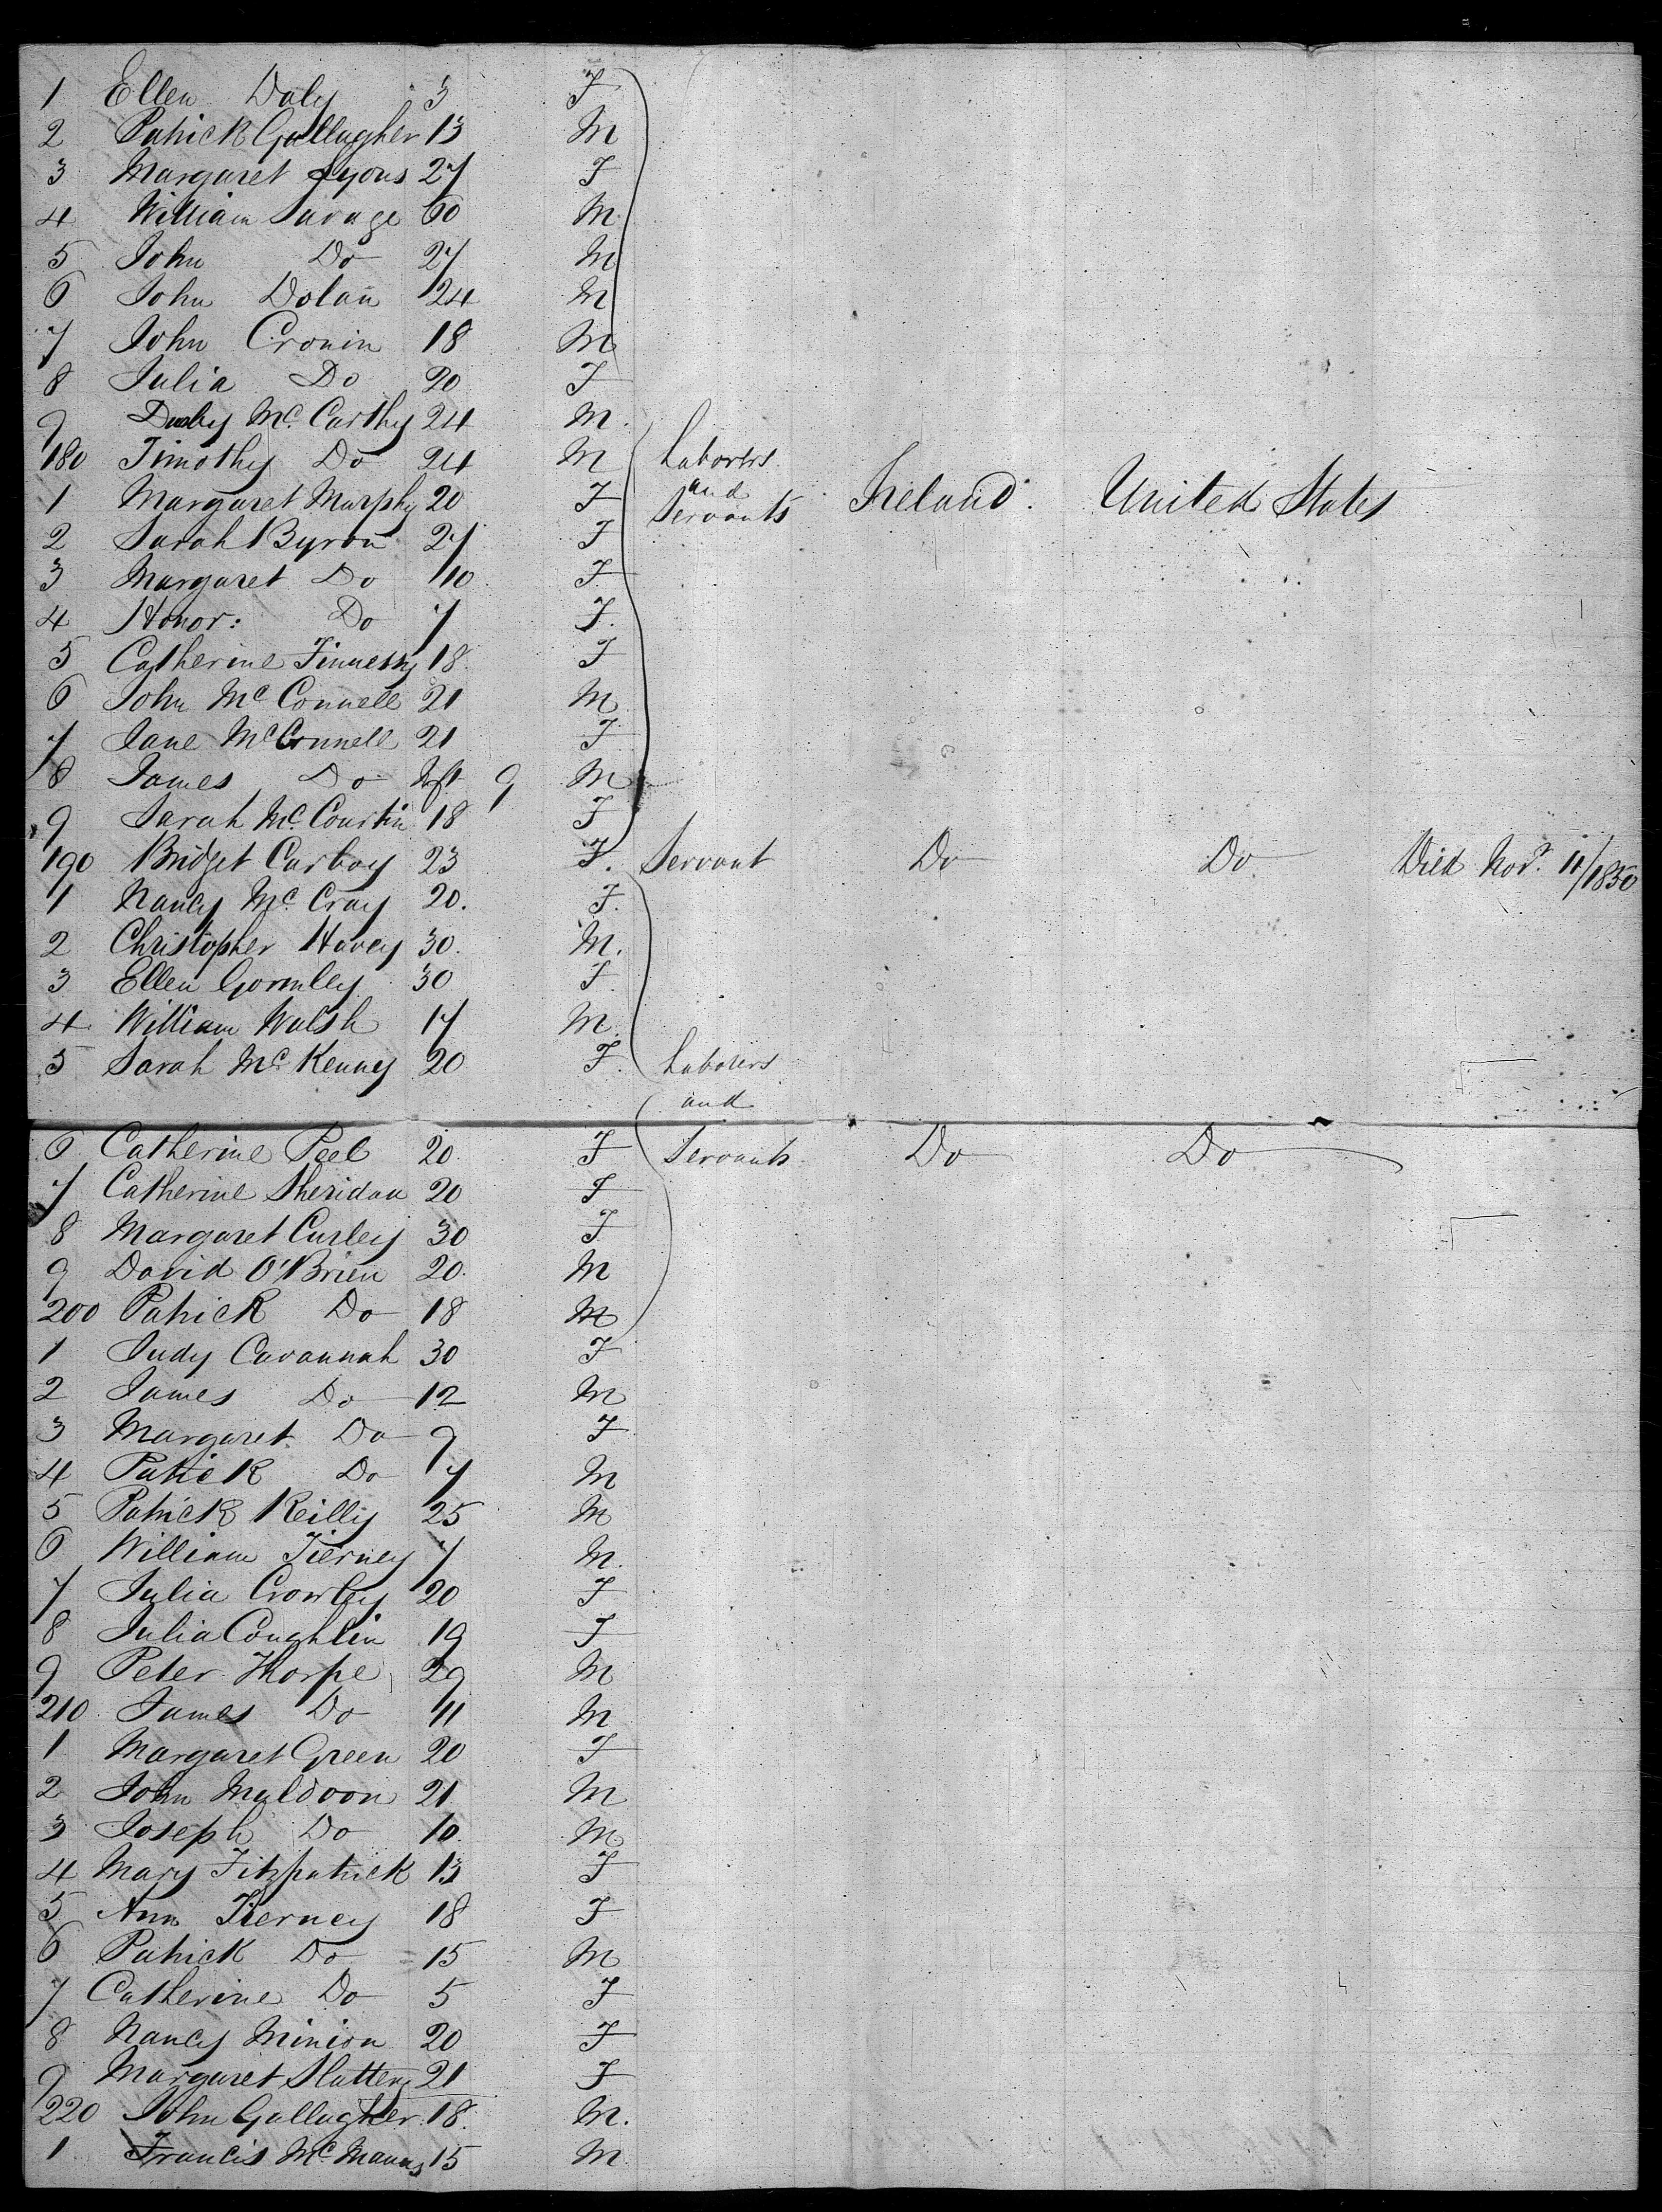 1 Ellen Daly 3 F
2 Patrick Gallagher 13 M
3 Margaret Lyons 27 F
4 William Savage 60 M
5 John Do 27 M
6 John Dolan 24 M
7 John Cronin 18 M
8 Julia Do 20 F
9 Darby McCarthy 24 M.
180 Timothy Do 24 M Laborers
and
1 Margaret Murphy 20 F Servants Ireland. United States
2 Sarah Byron 27 F
3 Margaret Do 10 F
4 Honor: Do 7 F.
5 Catherine Finnessy 18 F
6 John McConnell 21 M
7 Jane McConnell 21 F
8 James Do Inft 9 M
9 Sarah McCourtin 18 F
190 Bridget Carboy 23 F. Servant Do Do Died Novr. 11/1850
1 Nancy McCray 20. F.
2 Christopher Havey 30. M.
3 Ellen Gormley 30 F
4 William Walsh 17 M.
5 Sarah McKenney 20 F. Laborers
and
6 Catherine Peel 20 F Servants Do Do
7 Catherine Sheridan 20 F
8 Margaret Curley 30 F
9 David O'Brien 20. M
200 Patrick Do 18 M
1 Judy Cavannah 30 F
2 James Do 12 M
3 Margaret Do 9 F
4 Patrick Do 7 M
5 Patrick Reilly 25 M
6 William Tierney 7 M.
7 Julia Crowley 20 F
8 Julia Coughlin 19 F
9 Peter Thorpe 29 M
210 James Do 11 M
1 Margaret Green 20 F
2 John Muldoon 21 M
3 Joseph Do 10 M
4 Mary Fitzpatrick 13 F
5 Ann Tierney 18 F
6 Patrick Do 15 M
7 Catherine Do 5 F
8 Nancy Minion 20 F
9 Margaret Slattery 21 F
220 John Gallagher 18. M.
1 Francis McManus 15 M